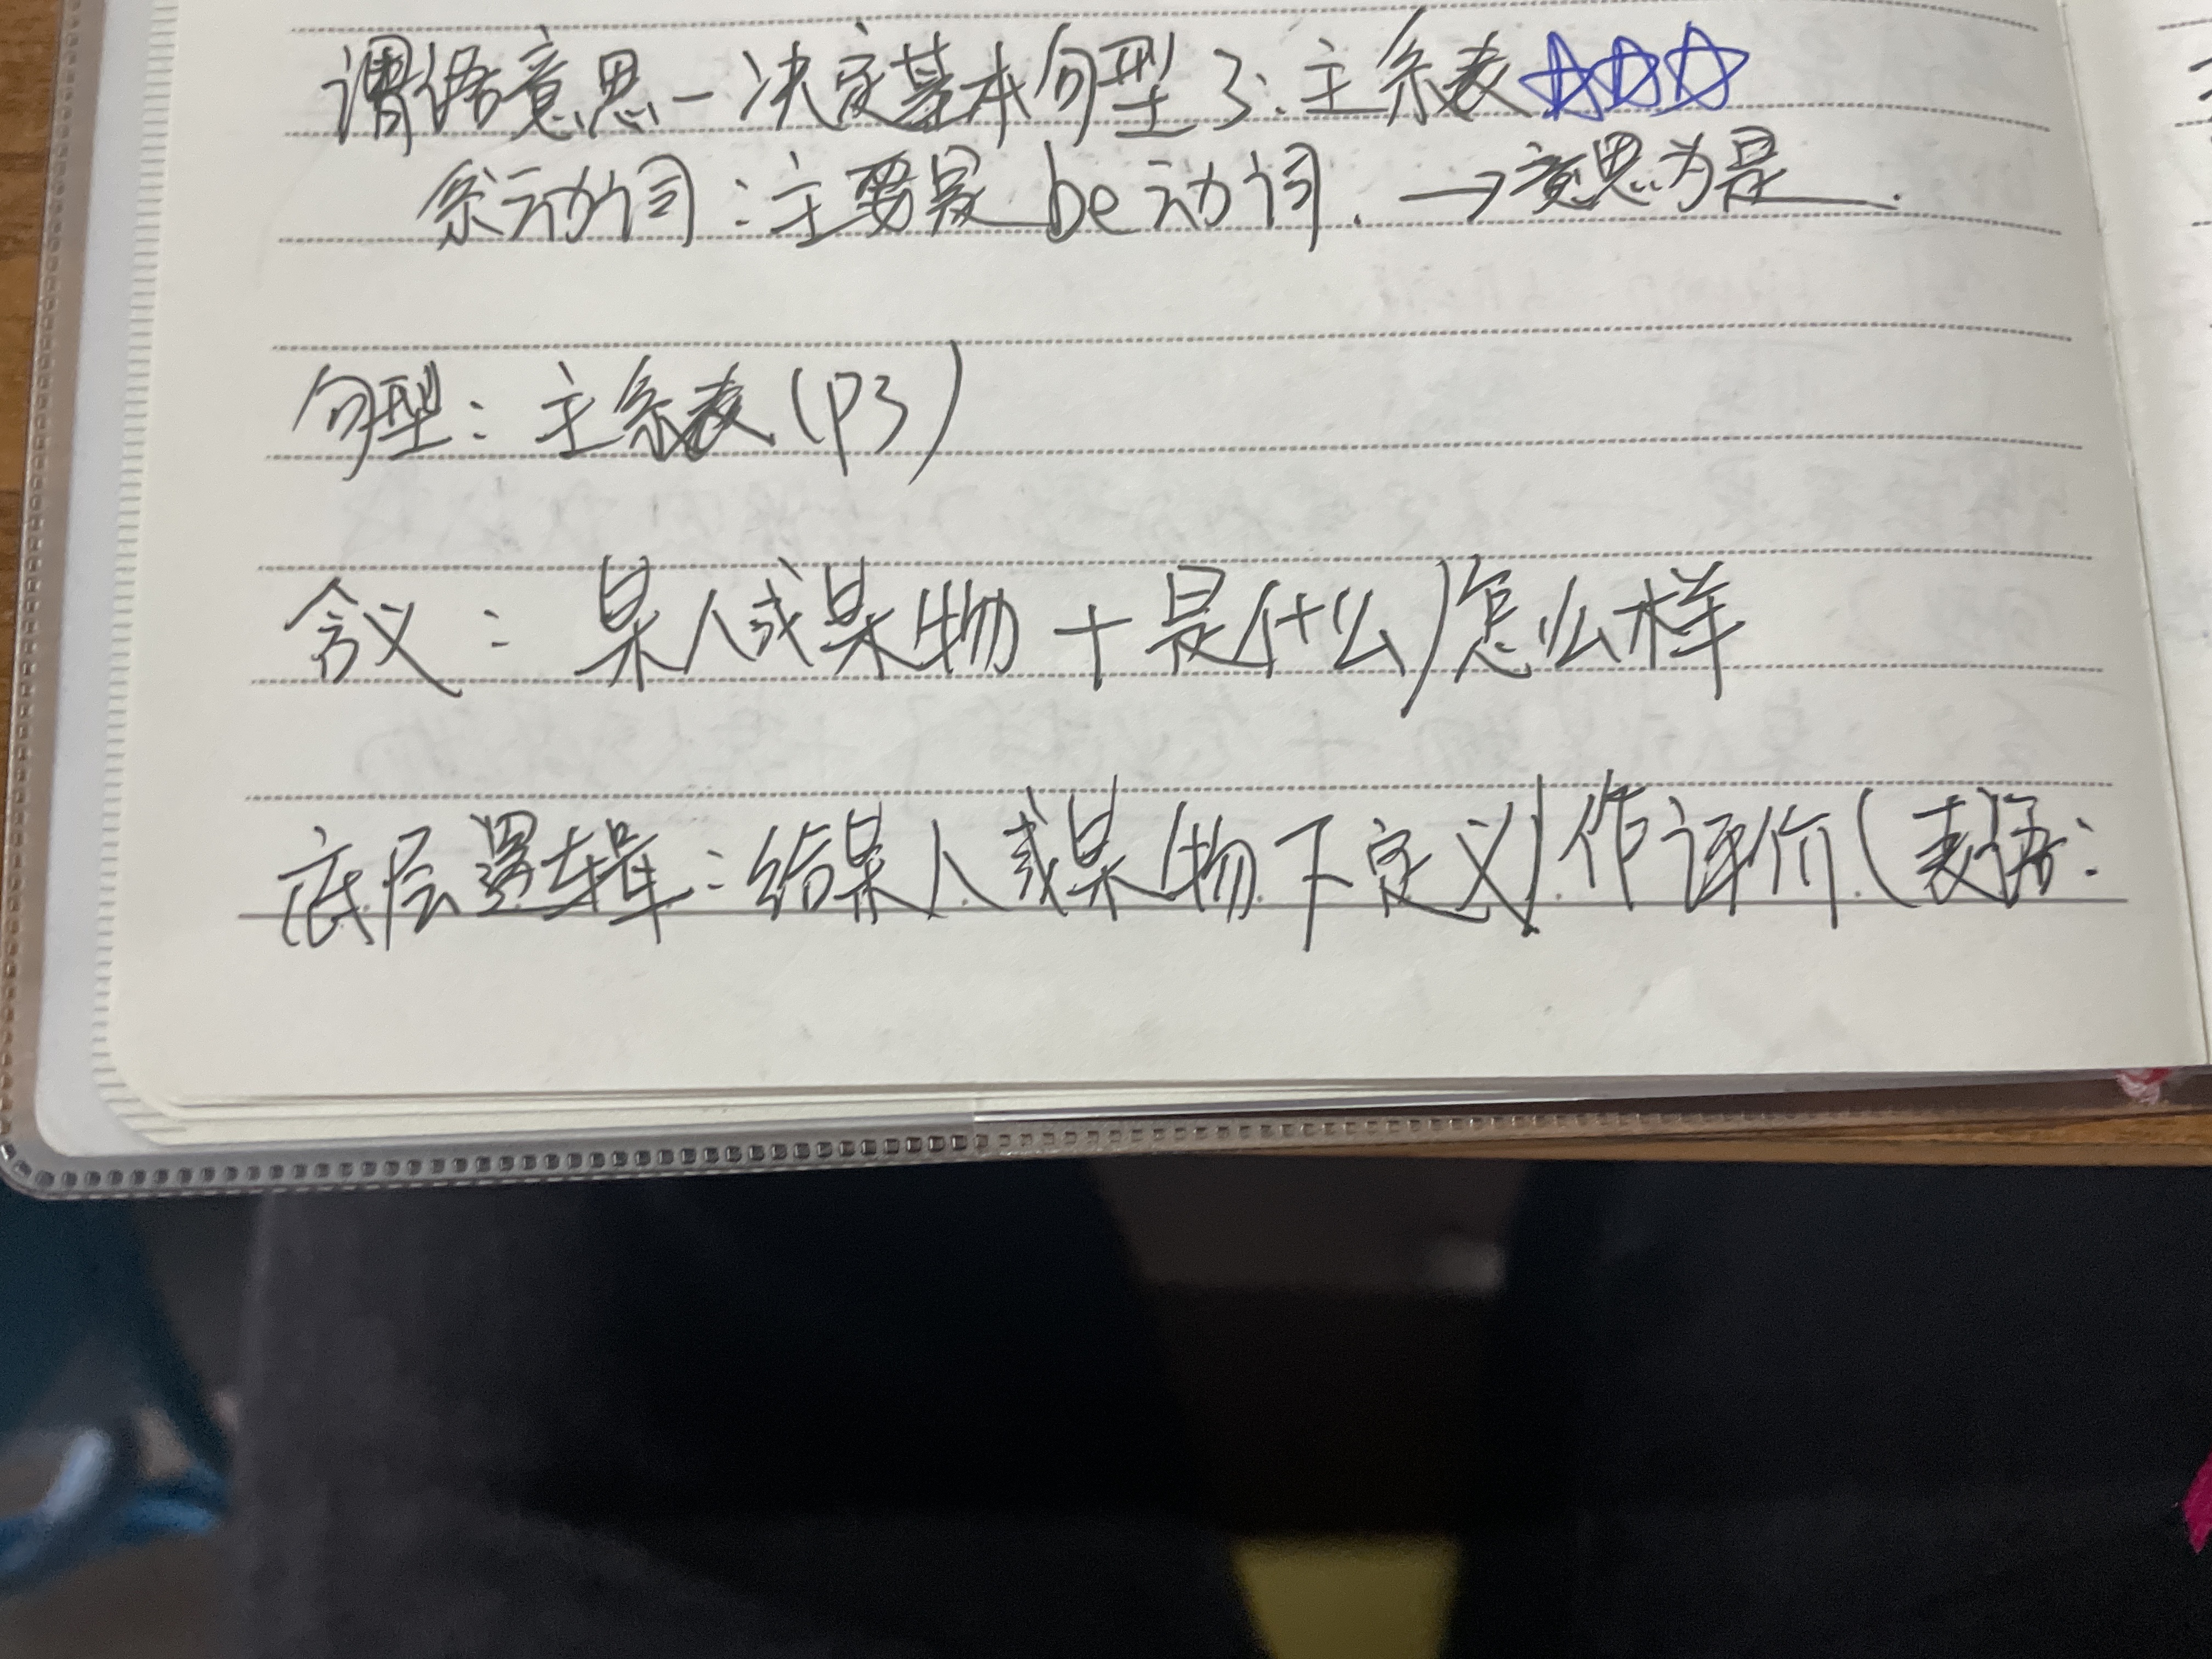 谓语意思一决定基本句型3:主系表
系动词:主要是be动词.→意思为是
句型:主系表(P3)
含义:某人或某物+是什么/怎么样
底层逻辑:给某人或某物下定义/作评价(表語: